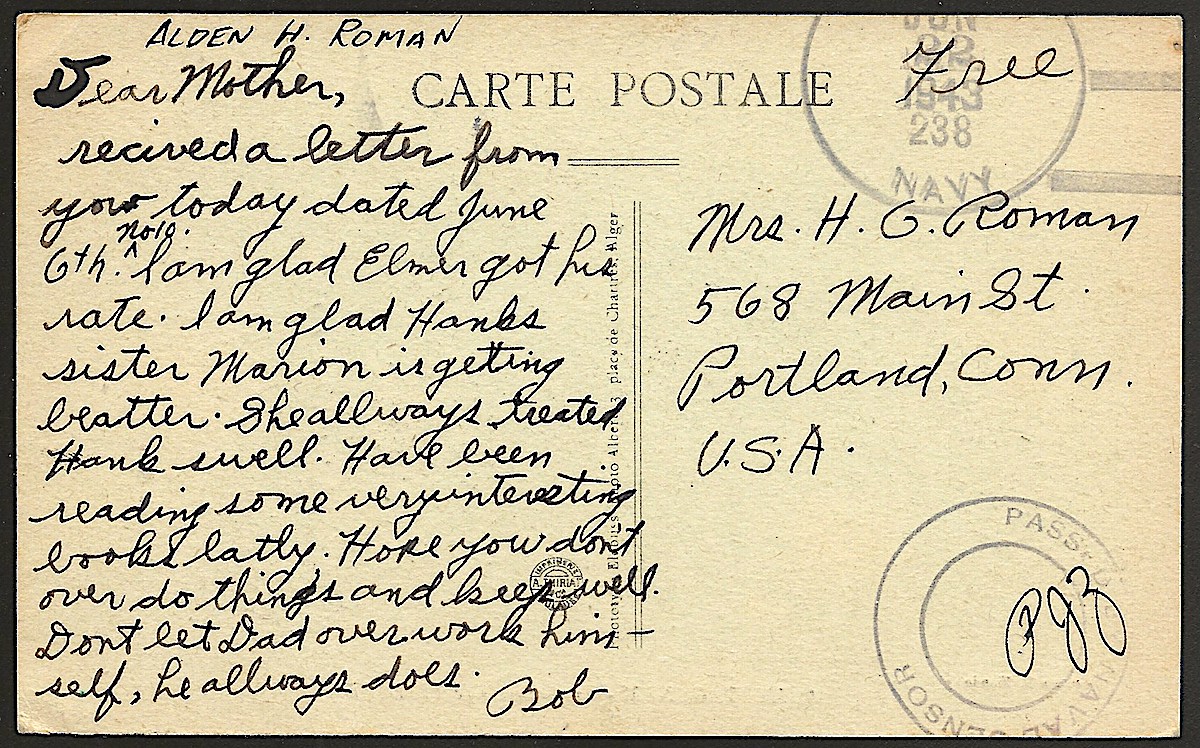 ALDEN H. ROMAN
Dear Mother,
recived a letter from
you today dated June
No 10.
6th. ^ I am glad Elmer got his
rate. I am glad Hanks
sister Marion is getting
beatter. She allways treated
Hank swell. Have been
reading some very interesting
books latly. Hope you dont
over do things and keep well.
Dont let Dad over work him-
self, he allways does.
Bob
CARTE POSTALE
Free
JUN
22
1943
238
NAVY
Mrs. H. G. Roman
568 Main St.
Portland, Conn.
U.S.A.
place de Chartres, Alger
IMPRIMERIE
PASSED
NAVAL CENSOR